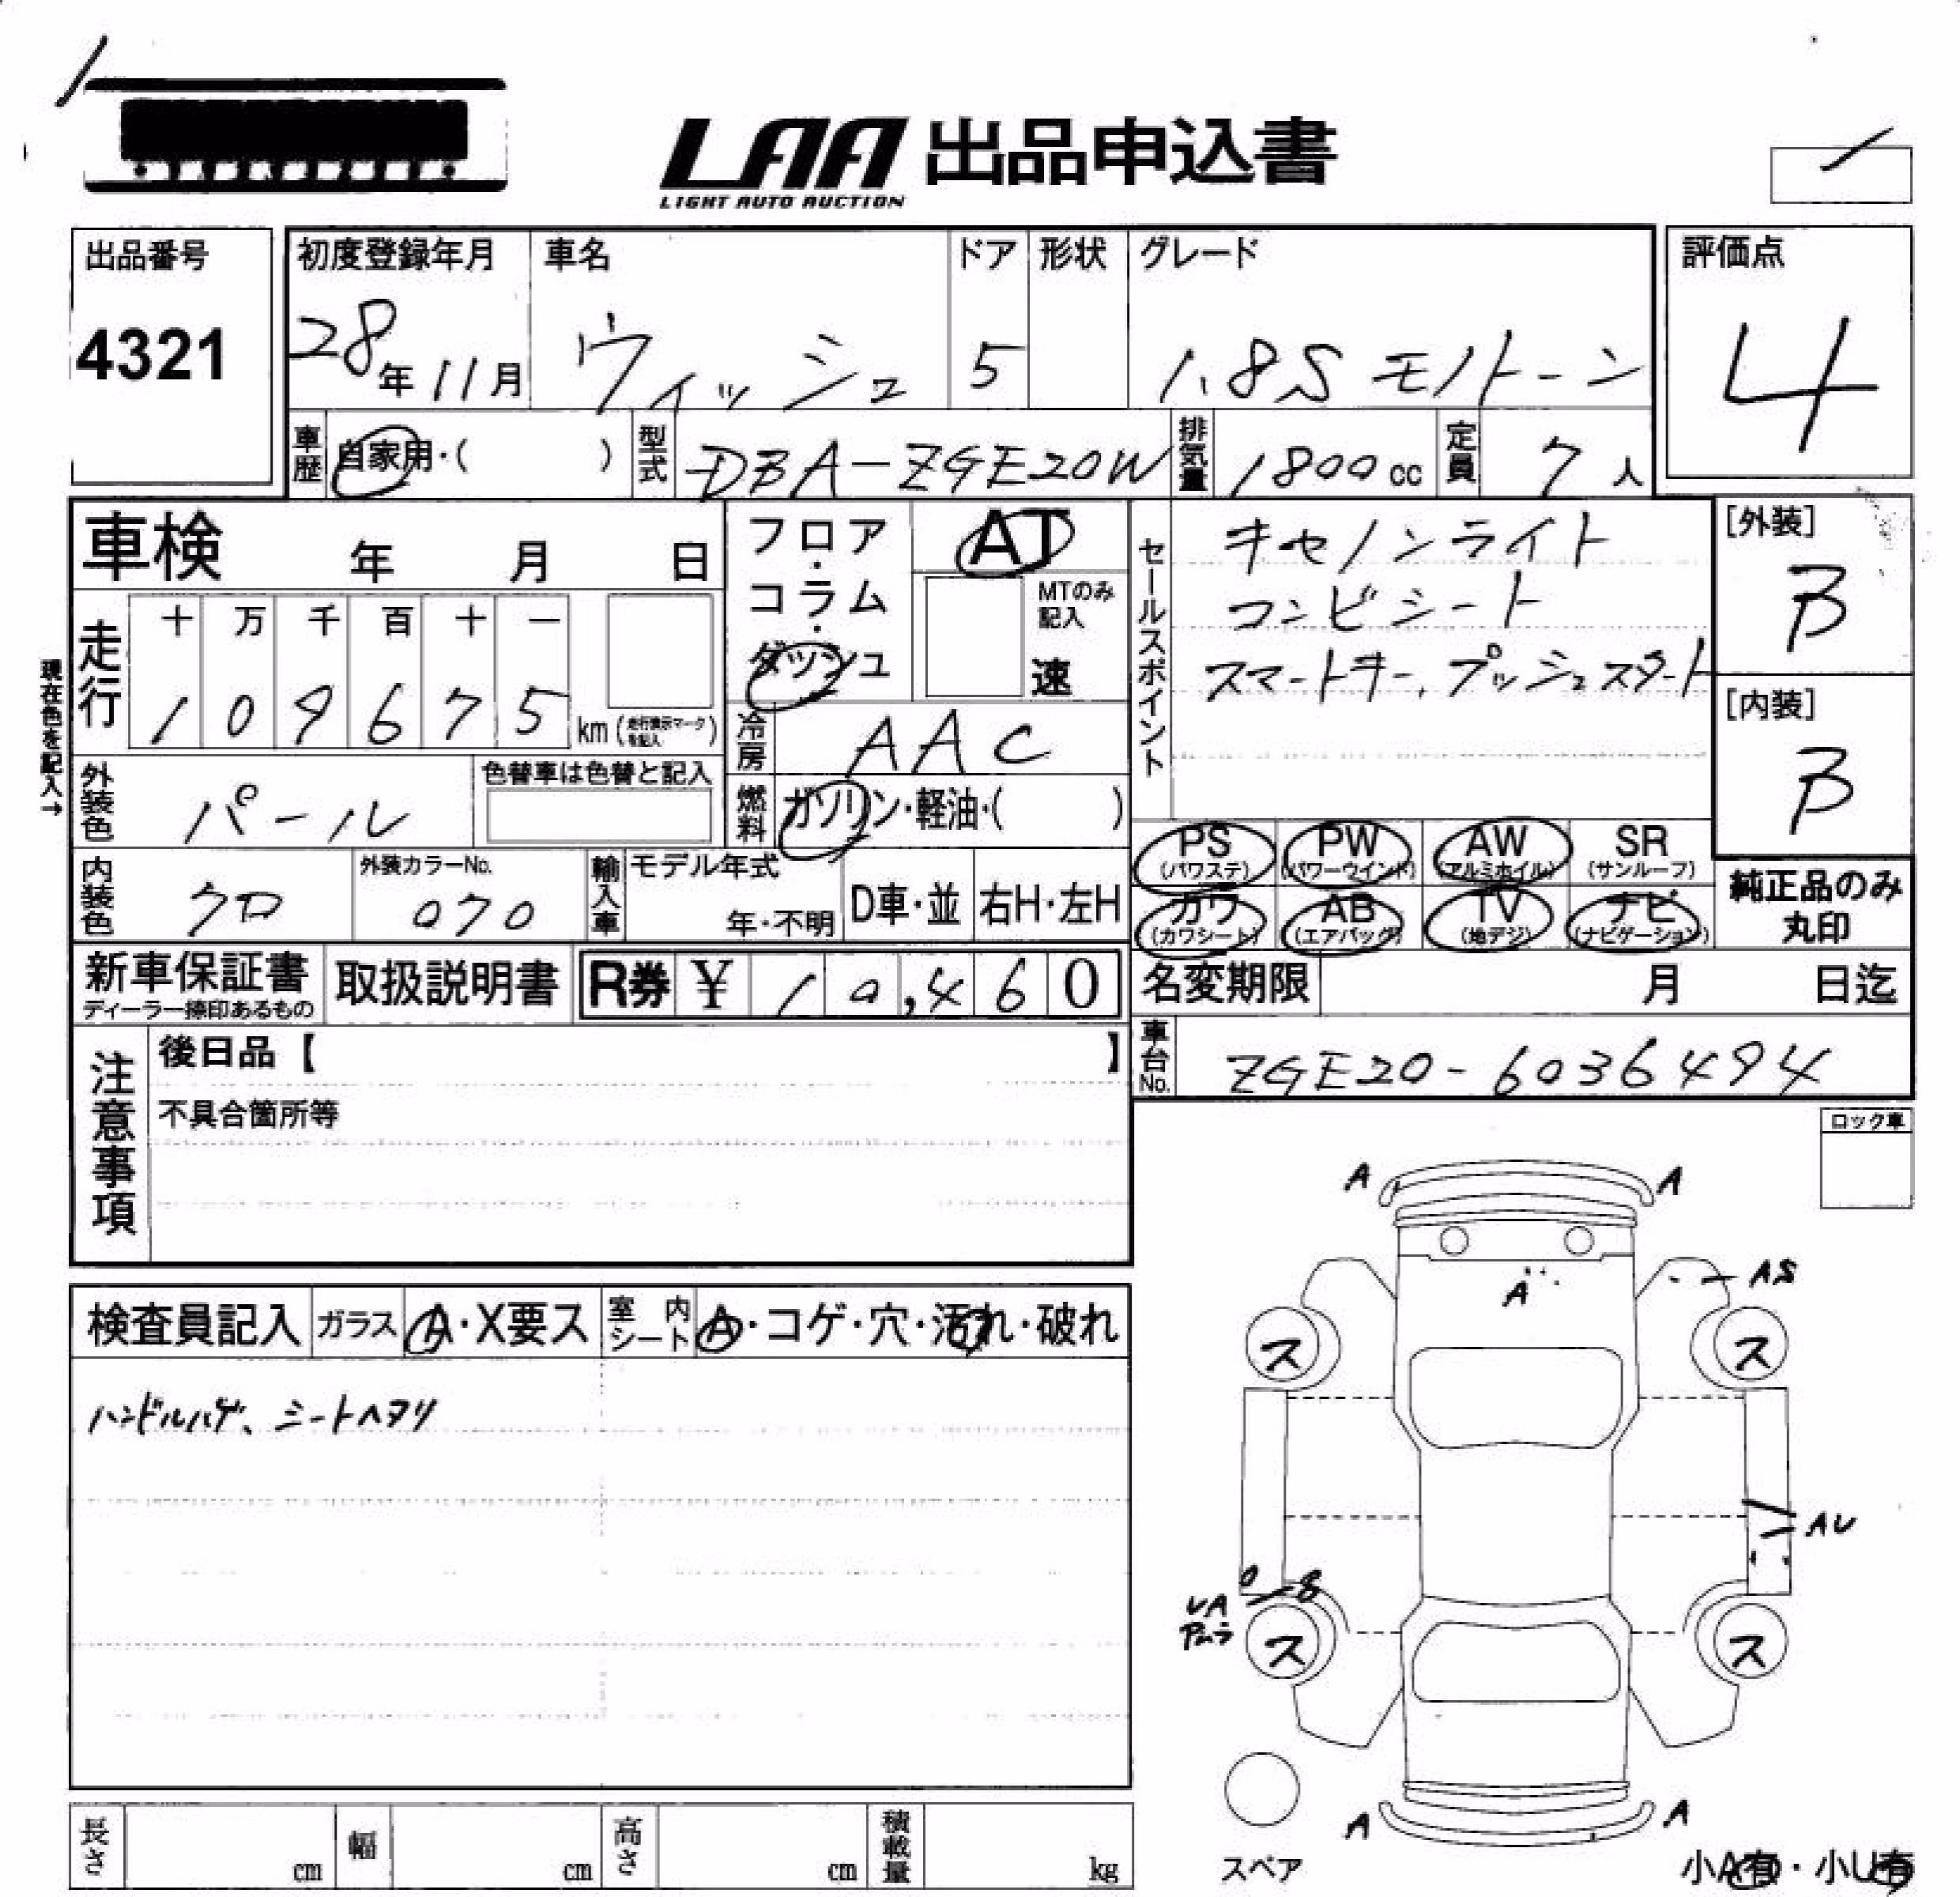 LAA 出品申込書
LIGHT AUTO AUCTION
出品番号
4321
初度登録年月
28年11月
車名
ウィッシュ
ドア
5
形状
グレード
1.8S モノトーン
評価点
4
車歴
自家用・( )
型式
DBA-ZGE20W
排気量
1800cc
定員
7人
車検 年 月 日
フロア・コラム・ダッシュ
AT
MTのみ記入
速
セールスポイント
キセノンライト
コンビシート
スマートキー、プッシュスタート
[外装]
B
[内装]
B
現在色を記入→
走行
十 万 千 百 十 一
1 0 9 6 7 5 km (走行表示マークを記入)
冷房
AAC
外装色
パール
色替車は色替と記入
燃料
ガソリン・軽油・( )
PS (パワステ)
PW (パワーウインド)
AW (アルミホイル)
SR (サンルーフ)
内装色
クロ
外装カラーNo.
070
輸入車
モデル年式
年・不明
D車・並
右H・左H
カワ (カワシート)
AB (エアバック)
TV (地デジ)
ナビ (ナビゲーション)
純正品のみ
丸印
新車保証書
ディーラー捺印あるもの
取扱説明書
R券 ¥ 10,460
名変期限 月 日迄
車台No.
ZGE20-6036494
注意事項
後日品【 】
不具合箇所等
ロック車
検査員記入
ガラス
A・X要ス
室内シート
A・コゲ・穴・汚れ・破れ
ハンドルハゲ、シートヘタリ
A A
A
AS
ス ス
AU
UA
ス ス
A A
スペア
小A有・小U有
長さ cm
幅 cm
高さ cm
積載量 kg